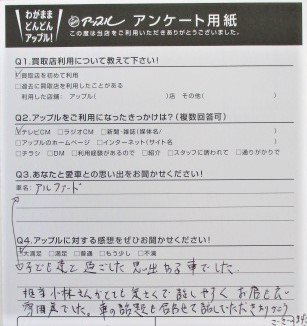 わがまま
どんどん
アップル!
アップル アンケート用紙
この度は当店をご利用いただきありがとうございました。
Q1.買取店利用について教えて下さい!
買取店を初めて利用
□過去に買取店を利用したことがある
利用した店舗: アップル( )店 その他( )
Q2.アップルをご利用になったきっかけは?(複数回答可)
テレビCM □ラジオCM □新聞・雑誌(媒体名/ )
□アップルのホームページ □インターネット(サイト名 )
□チラシ □DM □利用経験があるので □紹介 □スタッフに誘われて □通りがかりで
Q3.あなたと愛車との思い出をお聞かせください!
車名: アルファード
Q4.アップルに対する感想をぜひお聞かせください!
大満足 □満足 □普通 □もう少し □不満
子ども達と過ごした思い出ある車でした。
担当小林さんがとても 話しやすく お店も
車の話題も